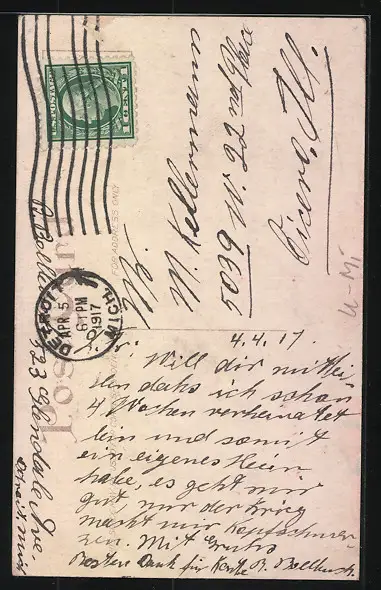 U.S. POSTAGE
1 CENT 1
DETROIT
APR 5
6 PM
1917
MICH.
FOR ADDRESS ONLY
M. Kellermann
5039 W. 22nd Place
Cicero, Ill.
U-Mi
4.4.17.
Will dir mittei-
len dahs ich schon
4 Wochen verheiratet
bin und somit
ein eigenes Heim
habe, es geht mir
gut nur der Krieg
macht mir Kopfschmer-
zen. Mit Gruhs
Besten Dank für Karte R.
R.
323 Glendale Ave.
Detroit Mich